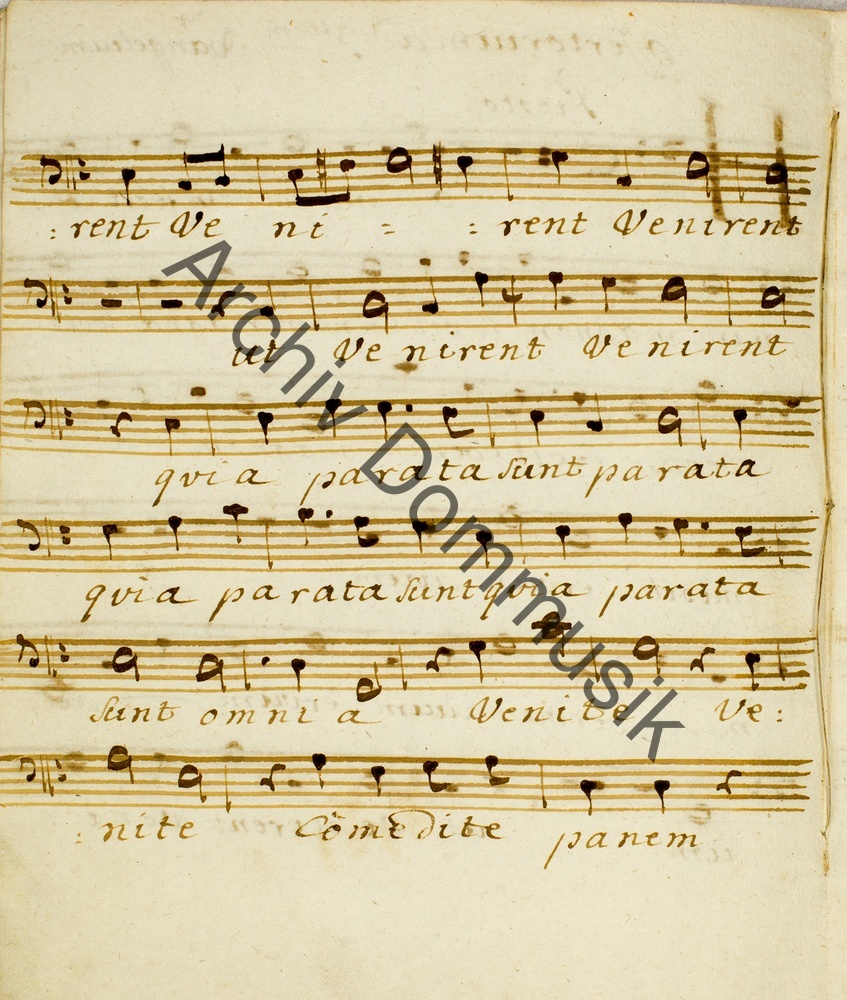 : rent Ve ni = : rent Venirent
ut Ve nirent Ve nirent
qvia parata sunt parata
qvia parata sunt qvia parata
sunt omni a Venite Ve :
: nite Cōmedite panem
Archiv Dommusik